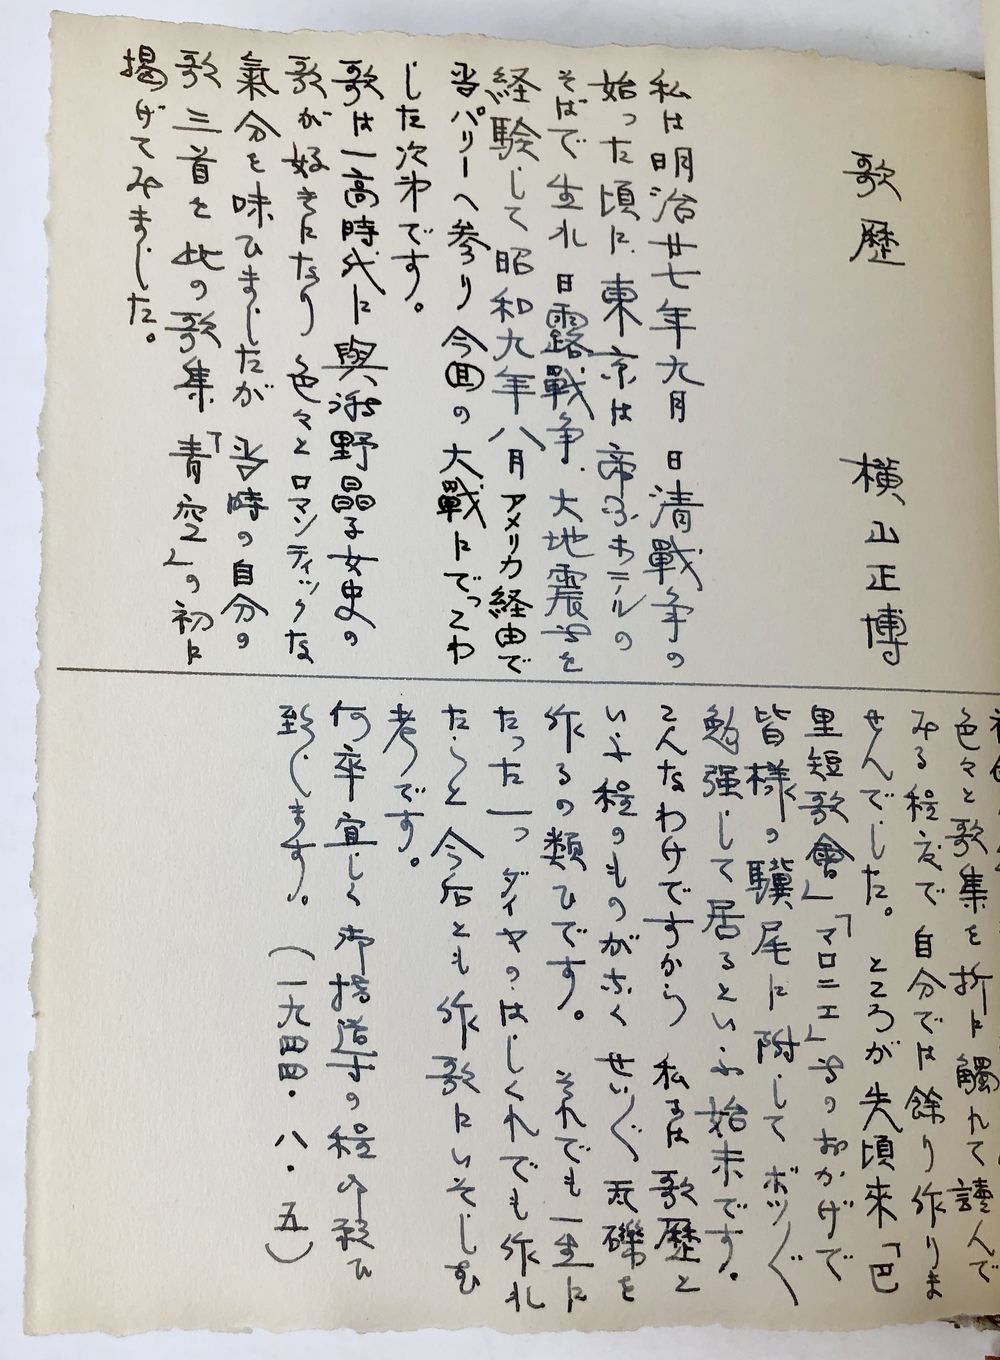 歌歴
横山正博
私は明治廿七年九月日清戰争の
始った頃に東京は帝ふホテルの
そばで生れ日露戰争、大地震等を
経験して昭和九年八月アメリカ経由で
当パリーへ参り今囬の大戰にでっこわ
した次第です。
歌は一高時代に與謝野晶子女史の
歌が好きになり色々とロマンティックな
氣分を味ひましたが当時の自分の
歌三首を此の歌集「青空」の初に
掲げてみました。
色々と歌集を折に觸れて讀んで
みる程度で自分では餘り作りま
せんでした。ところが先頃來「巴
里短歌會」「マロニエ」等のおかげで
皆様の驥尾に附してボツ〱
勉强して居るといふ始末です。
こんなわけですから私には歌歴と
いふ程のものがなくせい〲瓦礫を
作るの類ひです。それでも一生に
たった一つダイヤのはしくれでも作れ
たらと今后とも作歌にいそしむ
考です。
何卒宜しく御指導の程御願ひ
致します。(一九四四・八・五)